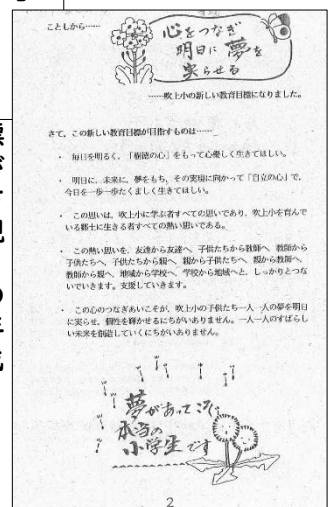 こともから……
心をつなぎ
明日に夢を
実らせる
……吹上小の新しい教育目標になりました。
さて、この新しい教育目標が目指すものは……
・ 毎日を明るく、「樹徳の心」をもって心優しく生きてほしい。
・ 明日に、未来に、夢をもち、その実現に向かって「自立の心」で、
今日を一歩一歩たくましく生きてほしい。
・ この思いは、吹上小に学ぶ者すべての思いであり、吹上小を育んで
いる郷土に生きる者すべての熱い思いである。
・ この熱い思いを、友達から友達へ、子供たちから教師へ、教師から
子供たちへ、子供たちから親へ、親から子供たちへ、親から教師へ、
教師から親へ、地域から学校へ、学校から地域へと、しっかりとつな
いでいきます。支援していきます。
・ この心のつなぎあいこそが、吹上小の子供たち一人一人の夢を明日
に実らせ、個性を輝かせるにちがいありません。一人一人のすばらし
い未来を創造していくにちがいありません。
夢があってこそ
本当の
小学生です
2